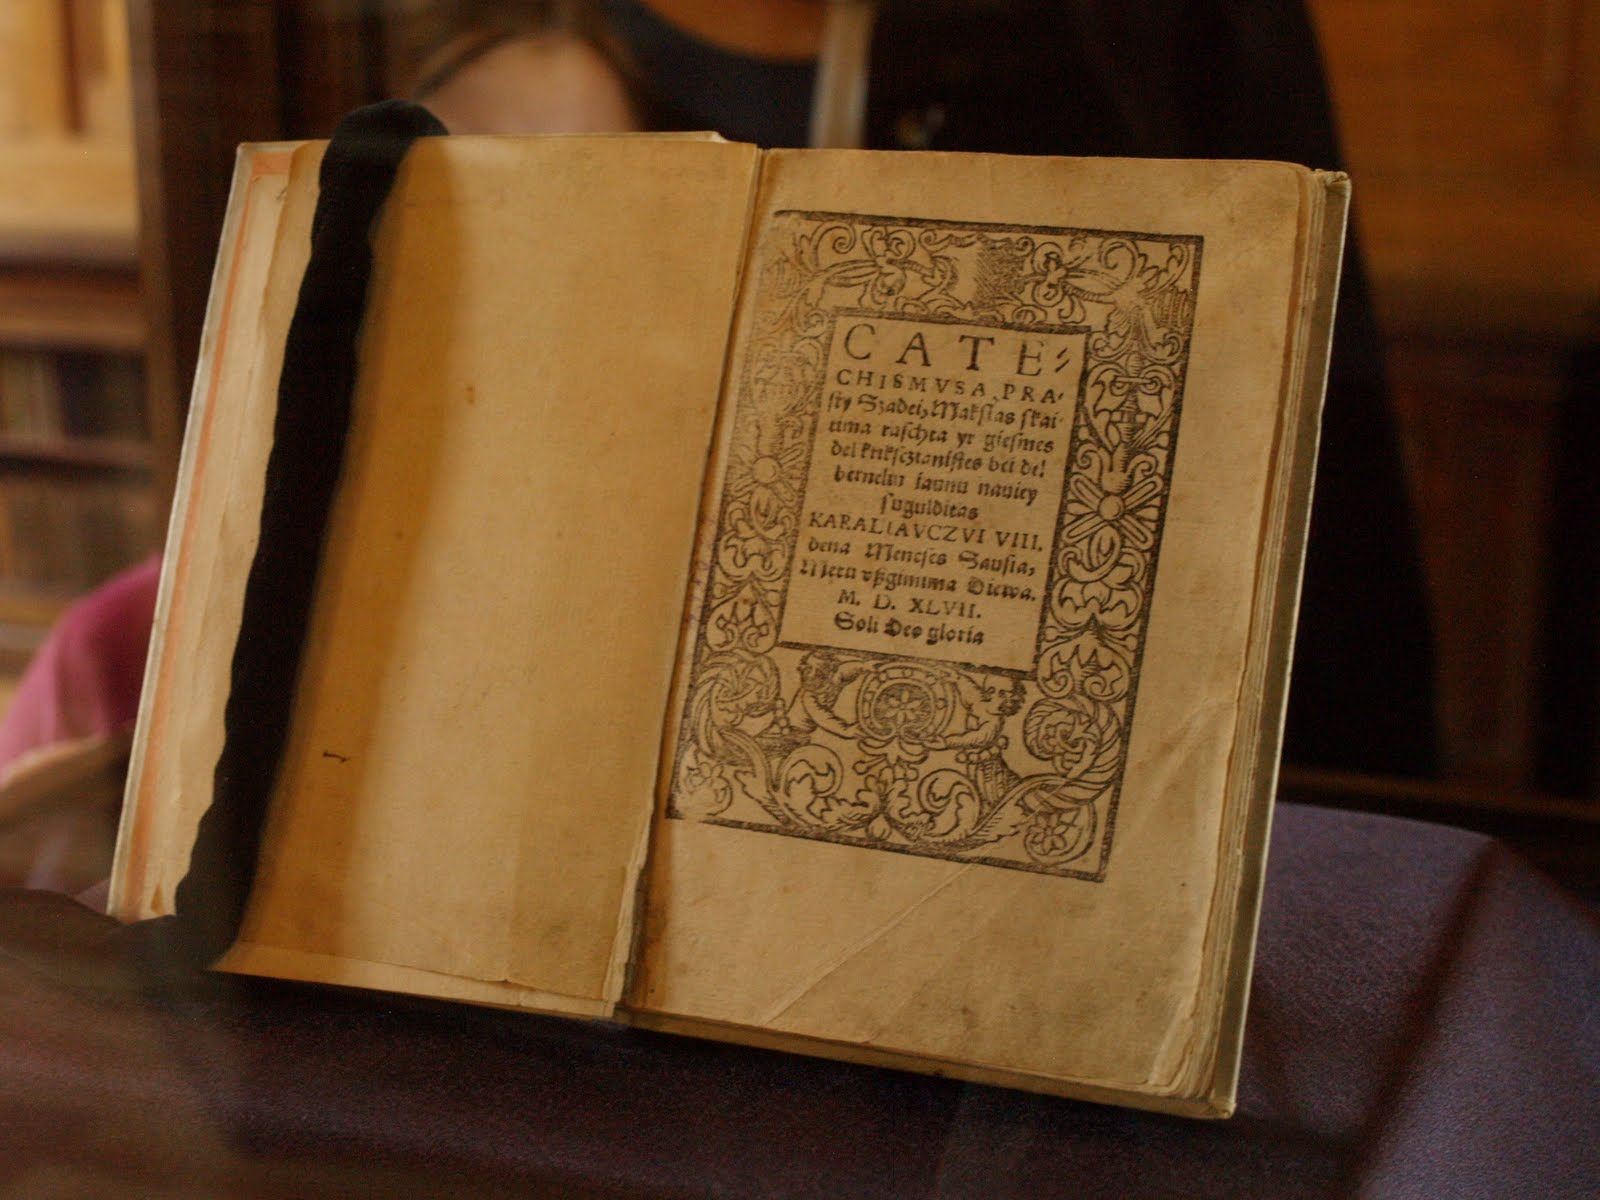 CATE⸗
CHISMVSA PRA⸗
ſty Szadei, Makſlas ſkai⸗
tima raſchta yr gieſmes
del krikſczianiſtes bei del
berneliu iaunu nauiey
ſugulditas
KARALIAVCZVI VIII.
dena Meneſes Sauſia,
Metu vßgimima Diewa.
M. D. XLVII.
Soli Deo gloria